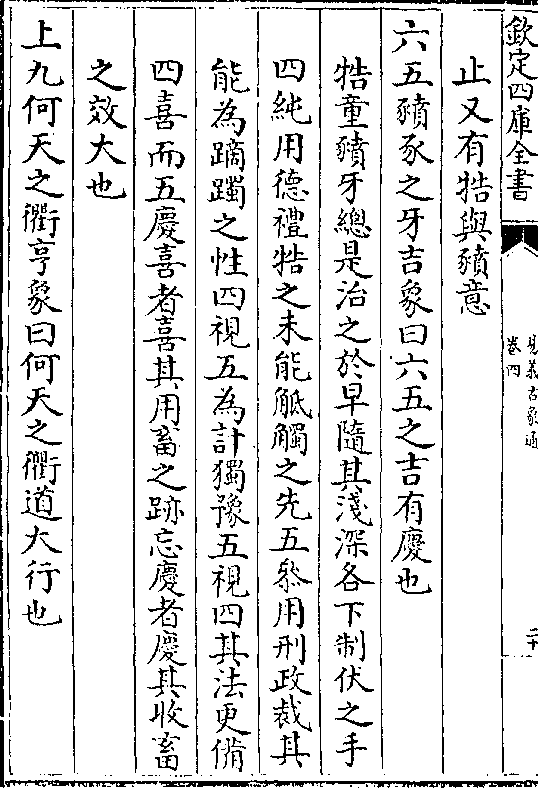 欽定四庫全書
易義古象通
卷四
二十
止又有牿與豶意
六五豶豕之牙吉象曰六五之吉有慶也
牿童豶牙總是治之於早隨其淺深各下制伏之手
四純用德禮牿之未能觝觸之先五叅用刑政裁其
能為蹢躅之性四視五為計獨豫五視四其法更備
四喜而五慶喜者喜其用畜之跡忘慶者慶其收畜
之效大也
上九何天之衢亨象曰何天之衢道大行也